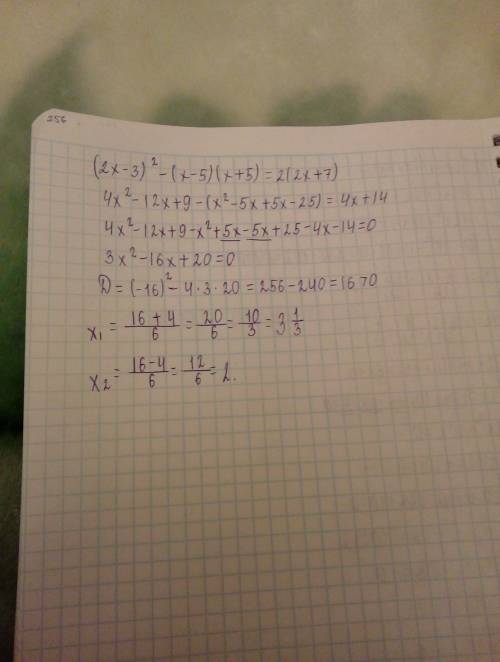 256
(2x-3)²-(x-5)(x+5)=2(2x+7)
4x²-12x+9-(x²-5x+5x-25)=4x+14
4x²-12x+9-x²+5x-5x+25-4x-14=0
3x²-16x+20=0
D=(-16)²-4·3·20=256-240=16>0
x₁=16+4/6=20/6=10/3=3 1/3
x₂=16-4/6=12/6=2.